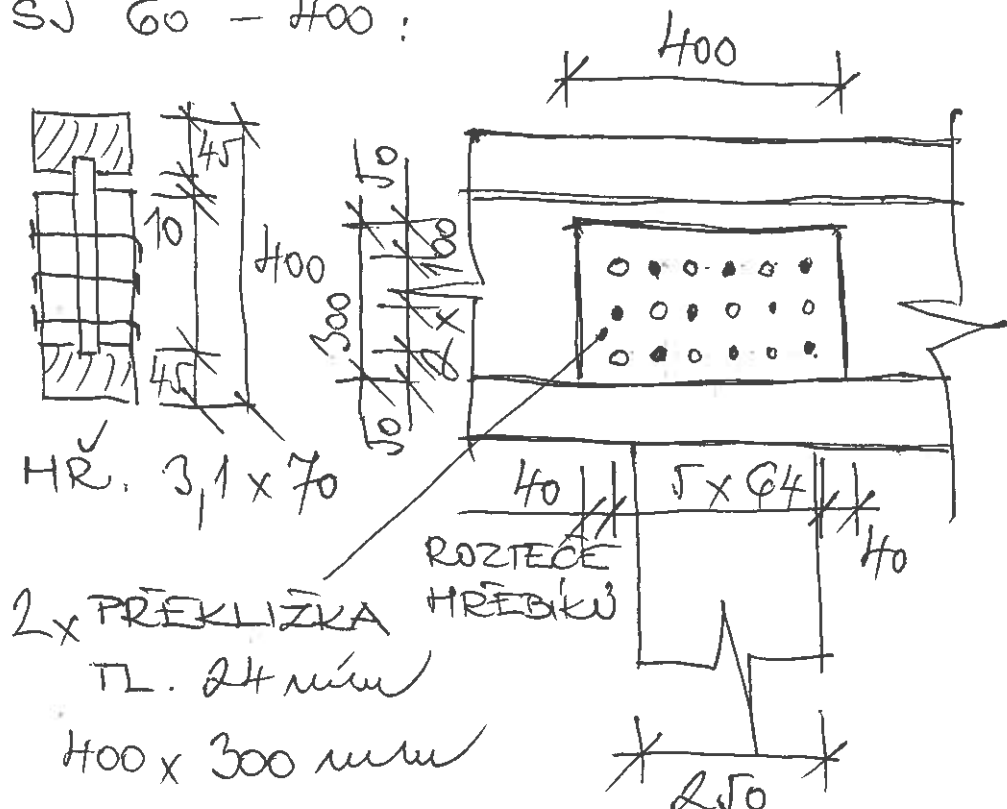 SJ 60 - 400 :
400
45
10
45
400
50
2 x 100
300
50
HŘ. 3,1 x 70
40
5 x 64
40
ROZTEČE
HŘEBÍKŮ
2x PŘEKLIŽKA
TL. 24 mm
400 x 300 mm
250